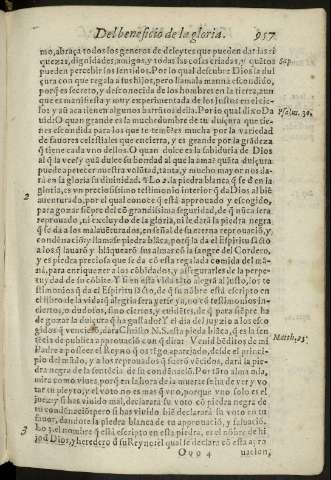 Del beneficio de la gloria. 957
mo, abraça todos los generos de deleytes que pueden dar las ri
quezas, dignidades, amigos, y todas las cosas criadas, y quãtos
pueden percebir los sentidos. Por lo qual descubre Dios la dul
çura con que regala a sus hijos, pero llamala manna escondido,
porq̃ es secreto, y desconocida de los hombres en la tierra, aun
que es manifiesta y muy experimentada de los justos en el cie-
Sap.
Psalm. 30.
lo, y aũ aca tienen algunos barrũtos della. Por lo qual dixo Da
uid: O quan grande es la muchedumbre de tu dulçura que tie-
nes escondida para los que te temẽ! es mucha por la variedad
de fauores celestiales que encierra, y es grande por la grãdeza
q̃ tiene cada vno dellos. O quan dulce es la sabiduria de Dios
al q̃ la vee! y quã dulce su bondad al que la ama! quãta dulçu-
puede apetecer nuestra volũtad, tanta, y mucho mayor nos da-
rá en la gloria su diuinidad. ¶ Lo 2. la piedra blanca q̃ se da en la
2
gloria, es vn preciosissimo testimonio interior q̃ da Dios al bië
auenturado, por el qual conoce q̃ está aprouado y escogido,
para gozar siẽpre del cõ grandissima seguridad, de q̃ nũca sera
reprouado, ni excluydo de la gloria, ni le dará la piedra negra
q̃ se da a los malauẽturados, en señal de su eterna reprouaciõ, y
condenaciõ: y llamase piedra blãca, porq̃ la da el Espiritu santo
a los q̃ lauarõ y blãquearõ sus almas cõ la sangre del Cordero,
y es piedra preciosa que se da cõ esta regalada comida del mã-
ná, para enriquezer a los cõbidados, y assegurarles de la perpe-
tuydad de su cõbite. Y si en esta vida tãto alegra al justo, los te
stimonios q̃ da el Espiritu sãcto, de q̃ su nõbre está escripto en
el libro de la vida: q̃ alegria sera ver se ya, no cõ testimonios in-
ciertos, o dudosos, sino ciertos, y euidẽtes, de q̃ para siẽpre ha
de gozar la dulçura q̃ ha gustado? Y el dia del juyzio a los esco
gidos q̃ vencierõ, dara Christo N. S. esta piedra blãca, q̃ es la sen
tencia de publica approuacion con q̃ dira: Venid bẽditos de mi
Padre a posseer el Reyno q̃ os tẽgo aparejado, desde el princi-
Matth. 25.
pio del mũdo, y a los reprouados q̃ fuerõ vẽcidos, dará la pie-
dra negra de la sentẽcia de su condenaciõ. Por tãto alma mia,
mira como viues, porq̃ en la hora de la muerte se ha de ver y vo
tar tu pleyto; y el voto no es mas q̃ vno, porque vno solo es el
juez: y si has viuido mal, declarará su voto cõ piedra negra de
tu condenaciõ: pero si has viuido biẽ declarará su voto en tu
fauor, dandote la piedra blanca de tu approuaciõ, y saluaciõ.
3
Lo 3. el nombre q̃ está escripto en esta piedra, es el nõbre de hi
jo d̃ Dios, y heredero d̃ su Reyno: el qual se declara cõ esta apro
Qqq 4 uacion,